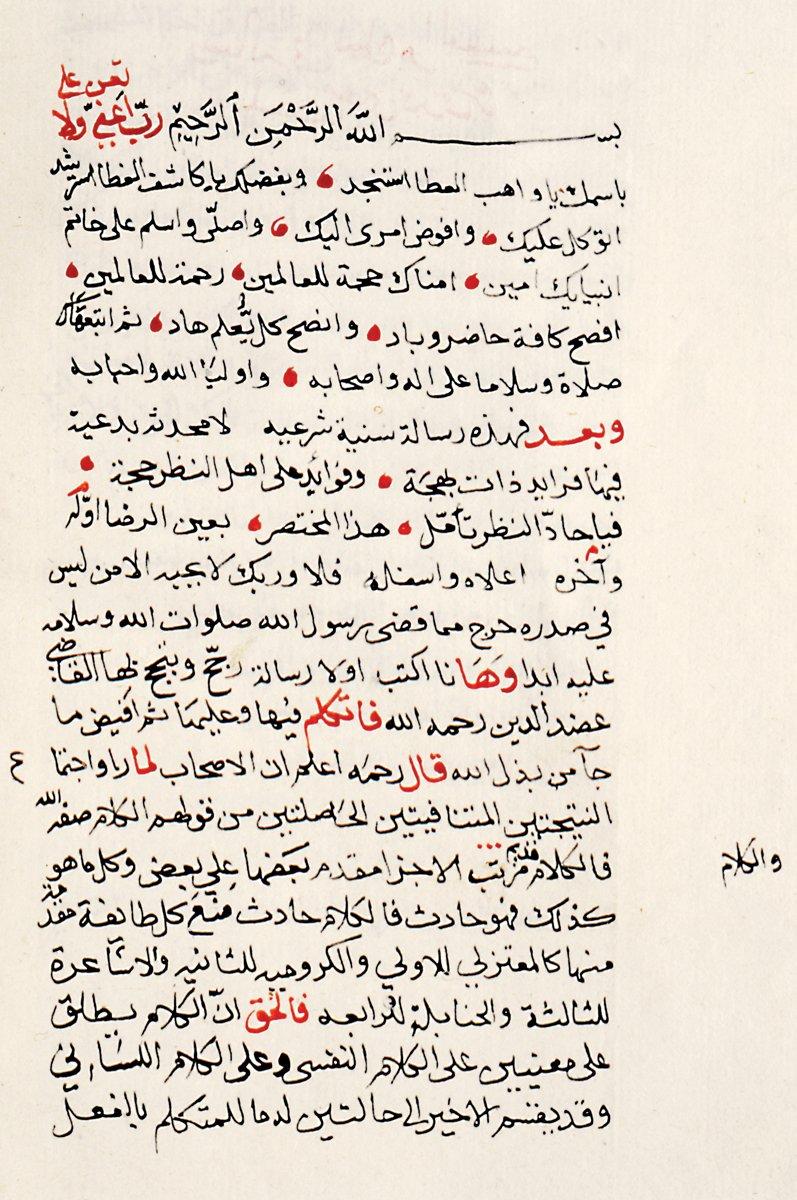 بســـم الله الرَّحْمٰنِ الرَّحِيْمِ ربّ اعنّي ولا
تعن علي
باسمك يا واهب العطا استنجد وبفضلك يا كاشف الغطا استرشد
اتوكل عليك وافوض امرى اليك واصلّى واسلم على خاتم
انبيايك امين امناك حجمة للعالمين رحمة للعالمين
افصح كافة حاضر وباد وانضح كل يُّعلم هاد ثم اتبعها
صلاة وسلاما على اله واصحابه واولياا الله واحبابه
وبعد فهذه رسالة سنية شرعيه لا محدثه بدعية
فيها فرايد ذات بهجة وفوايد على اهل النظر حجة
فيا حادّ النظر تأمّل هذا المختصر بعين الرضا اوّله
وآخره اعلاه واسفله فلا وربك لا يجيد الا من ليس
في صدره حرج مما قضى رسول الله صلوات الله وسلامه
عليه ابدا وهَا نا اكتب اولا رسالة رجّح وبجح بها القاضي
عضد الدين رحمه الله فاتكلم فيها وعليها ثم افيض ما
جآ من بذل الله قال رحمه اعلم ان الاصحاب لما راوا اجتماع
النتيجتين المتنافيتين الحاصلتين من قولهم الكلام صفة الله
فالكلام قديم مرتّب الاجزا مقدم بعضها على بعض وكل ما هو
والكلام
كذلك فهو حادث فالكلام حادث منَع كل طايفة مقدمة
منها كالمعتزلي للاولي والكروميه للثانيه والاشاعرة
للثالثة والحنابلة للرابعه فالحق انّ الكلام يطلق
على معنيين على الكلام النفسى وعلى الكلام اللسَانيْ
وقد يقسم الاخير الى حالتين لدما للمتكلم بالفعل